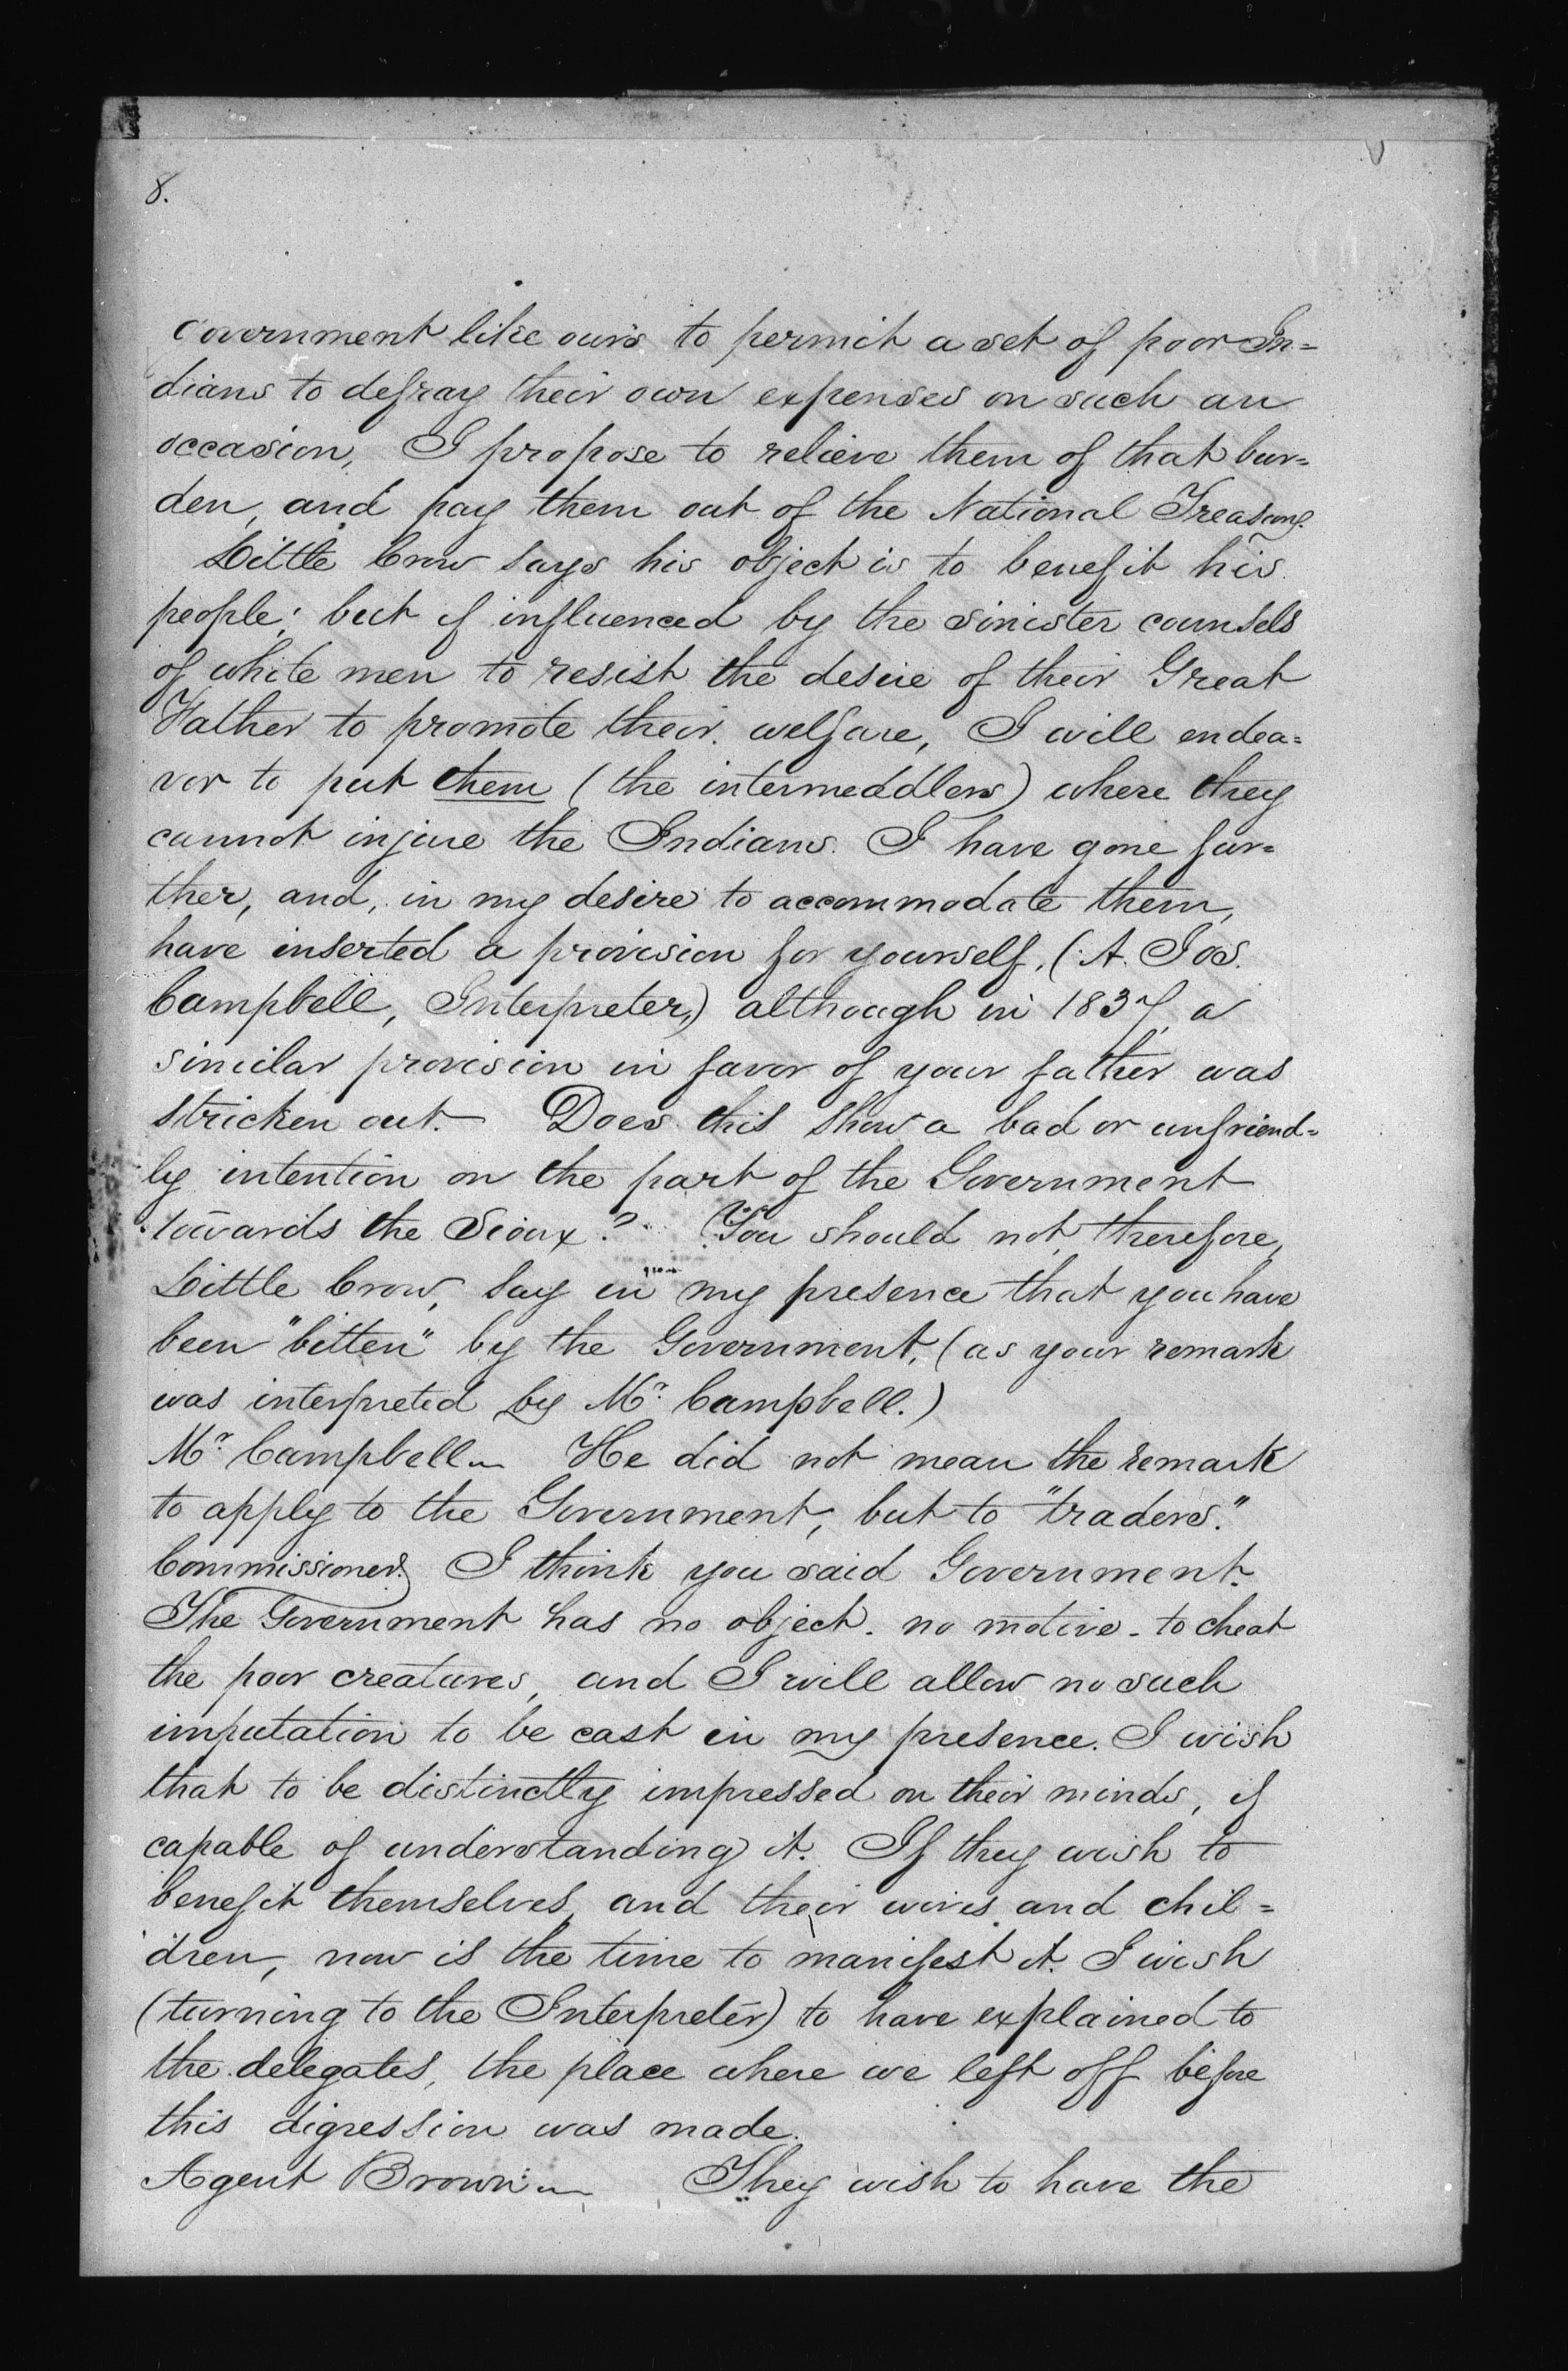 8.
Government like ours to permit a set of poor In=
dians to defray their own expenses on such an
occasion, I propose to relieve them of that bur=
den, and pay them out of the National Treasury.
Little Crow says his object is to benefit his
people; but if influenced by the sinister counsels
of white men to resist the desire of their Great
Father to promote their welfare, I will endea=
vor to put them (the intermeddlers) where they
cannot injure the Indians. I have gone fur=
ther, and, in my desire to accommodate them,
have inserted a provision for yourself, (A. Jos.
Campbell, Interpreter,) although in 1837, a
similar provision in favor of your father was
stricken out. Does this show a bad or unfriend=
ly intention on the part of the Government
towards the Sioux? You should not, therefore,
Little Crow, say in my presence that you have
been "bitten" by the Government, (as your remark
was interpreted by Mr. Campbell.)
Mr. Campbell — He did not mean the remark
to apply to the Government, but to "traders."
Commissioner. I think you said Government.
The Government has no object - no motive - to cheat
the poor creatures, and I will allow no such
imputation to be cast in my presence. I wish
that to be distinctly impressed on their minds, if
capable of understanding it. If they wish to
benefit themselves, and their wives and chil=
dren, now is the time to manifest it. I wish
(turning to the Interpreter) to have explained to
the delegates, the place where we left off before
this digression was made.
Agent Brown — They wish to have the